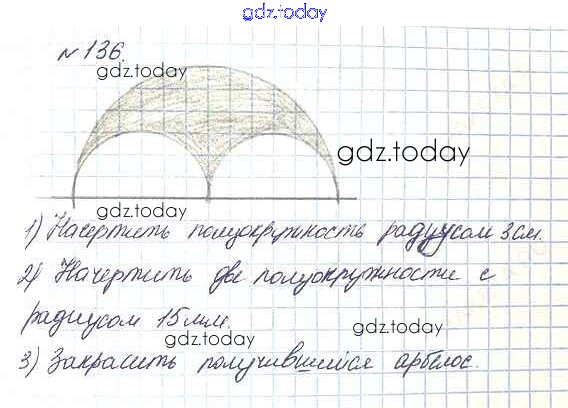 gdz.today
№ 136.
gdz.today
gdz.today
gdz.today
1) Начертить полуокружность радиусом 3 см.
2) Начертить две полуокружности с
радиусом 15 мм.
gdz.today
gdz.today
3) Закрасить получившийся арбелос.